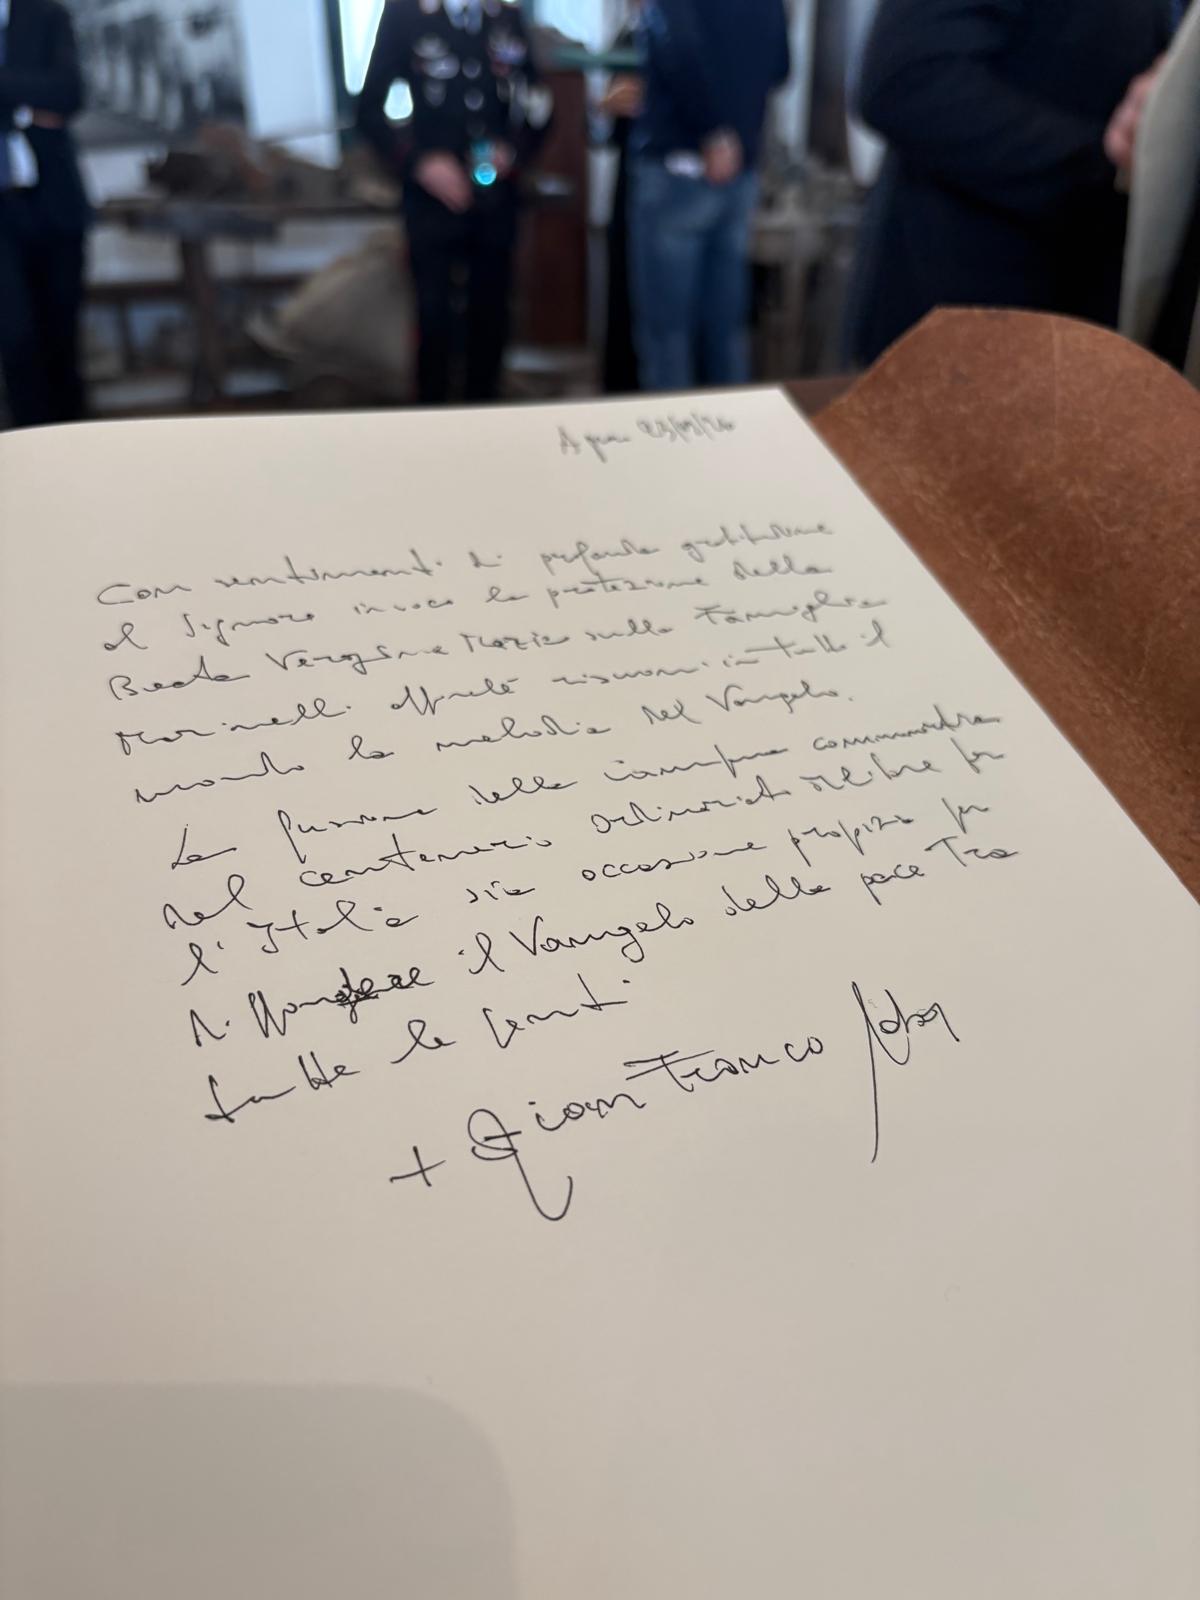 Con sentimenti di profonda gratitudine
al Signore invoco la protezione della
Beata Vergine Maria sulla Famiglia
Marinelli affinché risuoni in tutto il
mondo la melodia del Vangelo.
La fusione della campana commemorativa
del centenario Ordinariato Militare per
l'Italia sia occasione propizia per
diffondere il Vangelo della pace tra
tutte le genti
+ Gian Franco